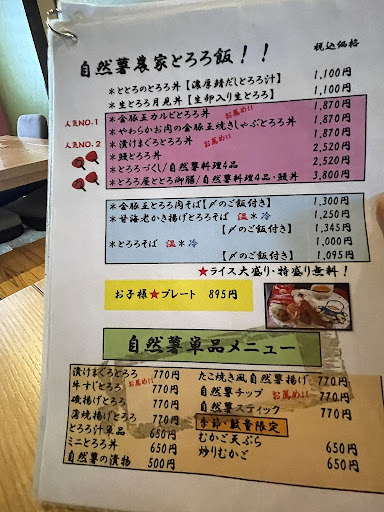 自然薯農家とろろ飯！！ 税込価格
＊ととろのとろろ丼【濃厚鯖だしとろろ汁】 1,100円
＊生とろろ月見丼【生卵入り生とろろ】 1,100円
人気NO.1 ＊金豚王カルビとろろ丼 お薦め!! 1,870円
＊やわらかお肉の金豚王焼きしゃぶとろろ丼 1,870円
人気NO.2 ＊漬けまぐろとろろ丼 お薦め!! 1,870円
＊鰻とろろ丼 2,520円
＊とろろづくし/自然薯料理4品 2,520円
＊とろろ屋ととろ御膳/自然薯料理4品・鰻丼 3,800円
＊金豚王とろろ肉そば【〆のご飯付き】 1,300円
＊甘海老かき揚げとろろそば 温＊冷 1,250円
【〆のご飯付き】 1,345円
＊とろろそば 温＊冷 1,000円
【〆のご飯付き】 1,095円
★ライス大盛り・特盛り無料！
お子様★プレート 895円
自然薯単品メニュー
漬けまぐろとろろ 770円
牛すじとろろ お薦め!! 770円
磯揚げとろろ 770円
蒲焼揚げとろろ 770円
とろろ汁単品 650円
ミニとろろ丼 650円
自然薯の漬物 500円
たこ焼き風自然薯揚げ 770円
自然薯チップ お薦め!! 770円
自然薯スティック 770円
季節・数量限定
むかご天ぷら 650円
炒りむかご 650円